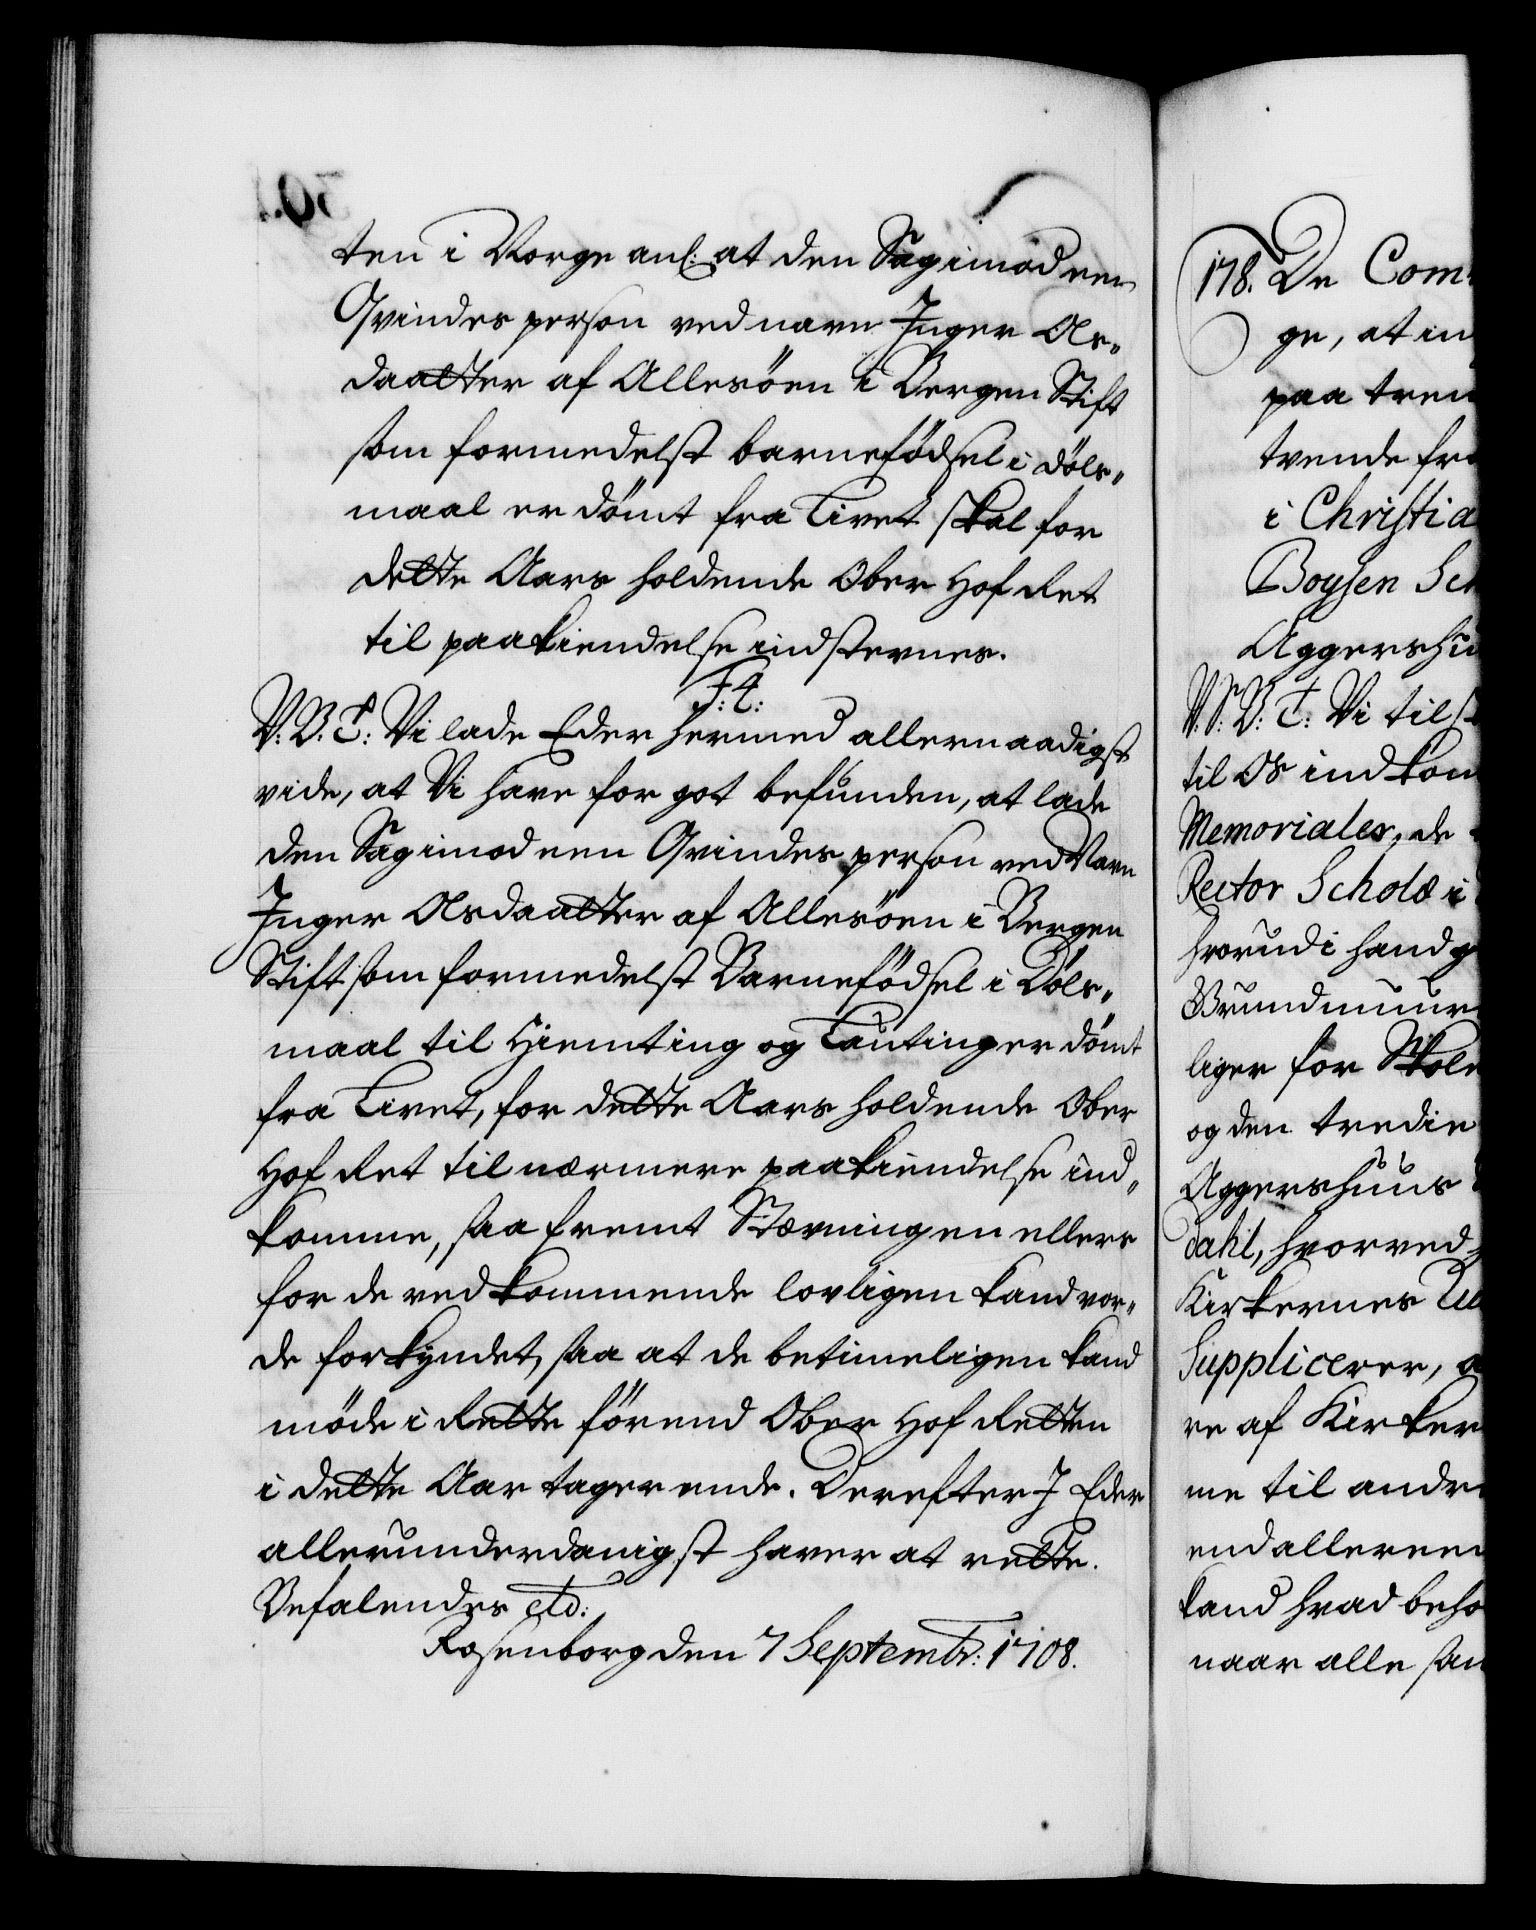 ten i Norge anl: at den Sag imod een
Qvindes person ved navn Inger Als„
daatter af Allesöen i Bergen Stift
som formedelst barnefödsel i döls„
maal er dömt fra Livet skal for
dette Aars holdende Ober Hof Ret
til paakiendelse indstevnes.
F: 4:
V: B: T: Vi lade Eder hermed allernaadigst
vide, at Vi have for got befunden, at lade
den Sag imod een Qvindes person ved Navn
Inger Olsdaatter af Allesöen i Bergen
Stift som formedelst Barnefödsel i Döls„
maal til Hiemting og Lauting er dömt
fra Livet, for dette Aars holdende Ober
Hof Ret til nærmere paakiendelse ind„
komme, saafremt Stævningen ellers
for de vedkommende lovligen kand vor„
de forkyndet, saa at de betimeligen kand
möde i Rette förend Ober Hof Retten
i dette Aar tager ende. Derefter I Eder
allerunderdanigst haver at rette.
Befalendes etc:
Rosenborg den 7 Septembr: 1708.
178. De Com
ge, at in
paa tren
tvende fra
i Christia
Boysen Sch
Aggershu
V. S: B: T: Vi tilst
til Os indkom
Memoriales, de
Rector Scholæ i
hvorudi hand
Grundmuur
liger for Skole
og den tredie
Aggershuus
dahl, hvorved
Kirkernes
Supplicerer, a
re af Kirker
me til andr
end alleree
kand hvad beho
naar alle saa